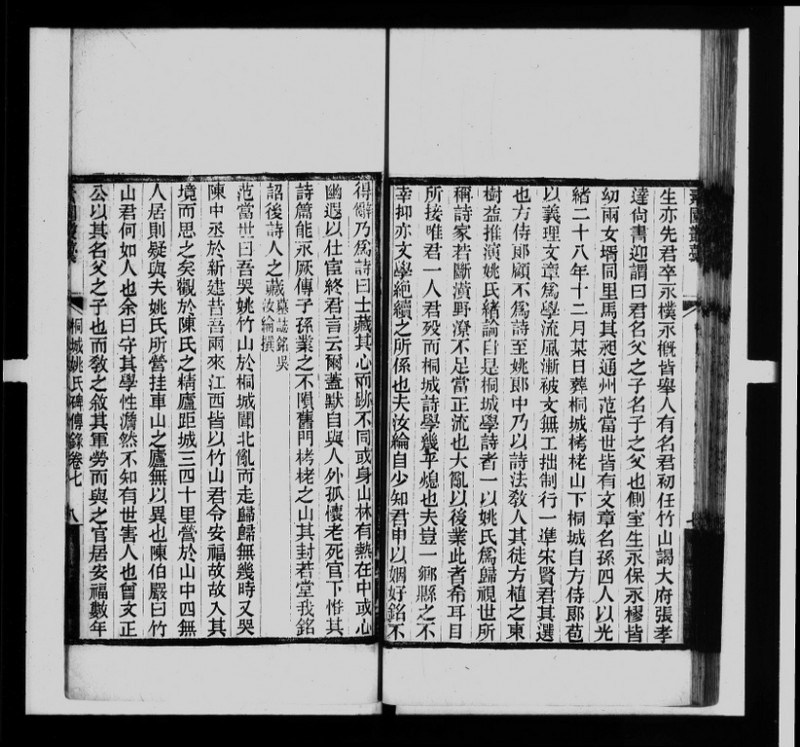 生亦先君卒永樸永概皆舉人有名君初任竹山謁大府張孝
達尚書迎謂曰君名父之子名子之父也側室生永保永樛皆
幼兩女壻同里馬其昶通州范當世皆有文章名孫四人以光
緒二十八年十二月某日葬桐城栲栳山下桐城自方侍郎苞
以義理文章爲學流風漸被文無工拙制行一準宋賢君其選
也方侍郎顧不爲詩至姚郎中乃以詩法敎人其徒方植之東
樹益推演姚氏緒論自是桐城學詩者一以姚氏爲歸視世所
稱詩家若斷潢野潦不足當正流也大亂以後業此者希耳目
所接唯君一人君歿而桐城詩學幾乎熄也夫豈一鄉縣之不
幸抑亦文學絕續之所係也夫汝綸自少知君申以姻好銘不
得辭乃爲詩曰士藏其心而跡不同或身山林有熱在中或心
幽遐以仕宦終君言云爾蓋默自與人外孤懷老死官下惟其
詩篇能永厥傳子孫業之不隕舊門栲栳之山其封若堂我銘
詔後詩人之藏墓誌銘吳汝綸撰
范當世曰吾哭姚竹山於桐城聞北亂而走歸歸無幾時又哭
陳中丞於新建昔吾兩來江西皆以竹山君令安福故故入其
境而思之矣觀於陳氏之精廬距城三四十里營於山中四無
人居則疑與夫姚氏所營挂車山之廬無以異也陳伯嚴曰竹
山君何如人也余曰守其學性澹然不知有世害人也曾文正
公以其名父之子也而敎之敘其軍勞而與之官居安福數年
桐城姚氏碑傳錄卷七
八